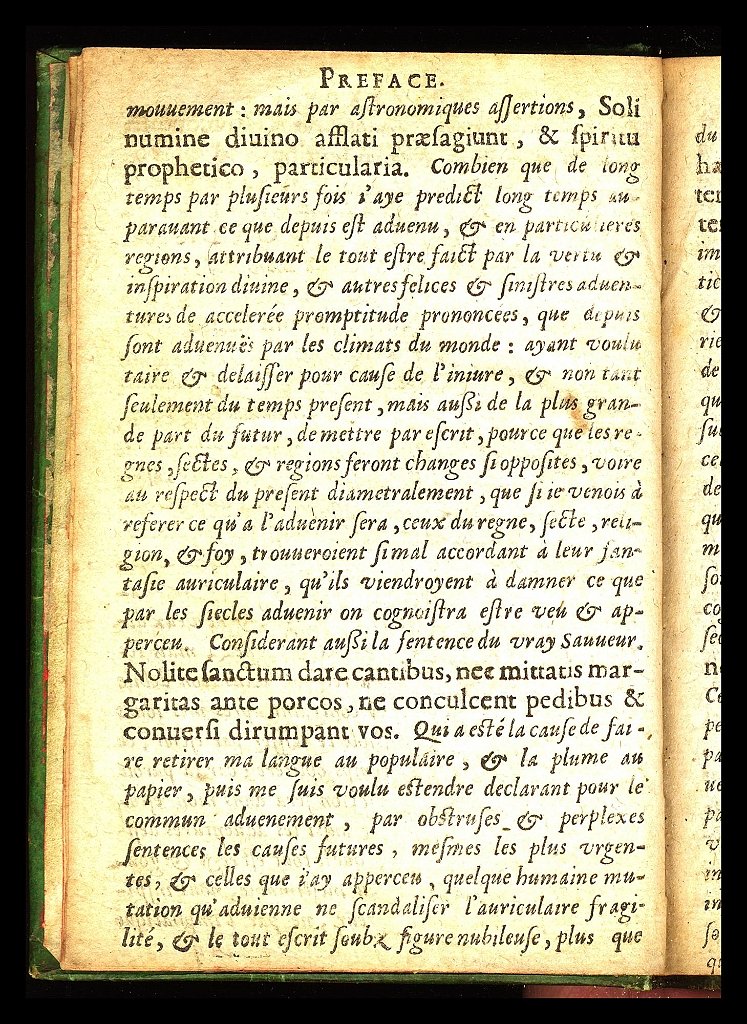 PREFACE.
mouuement : mais par aſtronomiques aſſertions, Soli
numine diuino afflati præſagiunt, & ſpiritu
prophetico, particularia. Combien que de long
temps par pluſieurs fois i'aye predict long temps au-
parauant ce que depuis eſt aduenu, & en particulieres
regions, attribuant le tout eſtre faict par la vertu &
inſpiration diuine, & autres felices & ſiniſtres aduen-
tures de accelerée promptitude prononcées, que depuis
ſont aduenuës par les climats du monde : ayant voulu
taire & delaiſſer pour cauſe de l'iniure, & non tant
ſeulement du temps preſent, mais auſsi de la plus gran-
de part du futur, de mettre par eſcrit, pource que les re-
gnes, ſectes, & regions feront changes ſi oppoſites, voire
au reſpect du preſent diametralement, que ſi ie venois à
referer ce qu'a l'aduenir ſera, ceux du regne, ſecte, reli-
gion, & foy, trouueroient ſi mal accordant à leur fan-
taſie auriculaire, qu'ils viendroyent à damner ce que
par les ſiecles aduenir on cognoiſtra eſtre veu & ap-
perceu. Conſiderant auſsi la ſentence du vray Sauueur,
Nolite ſanctum dare canibus, nec mittatis mar-
garitas ante porcos, ne conculcent pedibus &
conuerſi dirumpant vos. Qui a eſté la cauſe de fai-
re retirer ma langue au populaire, & la plume au
papier, puis me ſuis voulu eſtendre declarant pour le
commun aduenement, par obſtruſes & perplexes
ſentences les cauſes futures, meſmes les plus vrgen-
tes, & celles que i'ay apperceu, quelque humaine mu-
tation qu'aduienne ne ſcandaliſer l'auriculaire fragi-
lité, & le tout eſcrit ſoubz figure nubileuſe, plus que
du